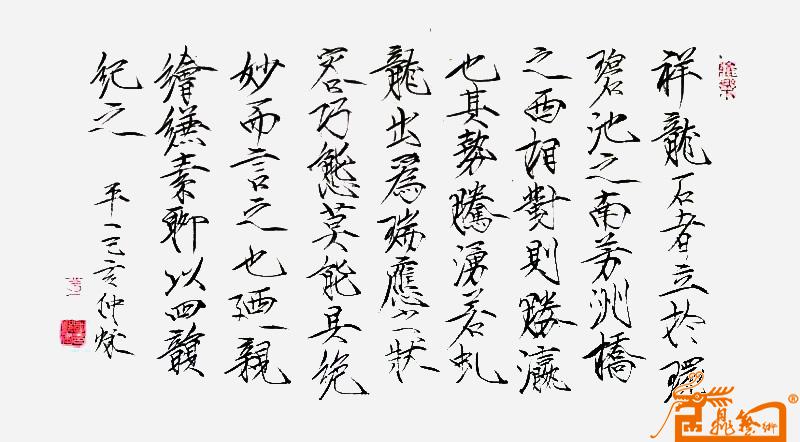 祥龍石者立於環
碧池之南芳洲橋
之西相對則勝瀛
也其勢騰湧若虬
龍出爲瑞應之狀
容巧態莫能具絶
妙而言之也廼親
繪縑素聊以四韻
紀之
平一己亥仲秋